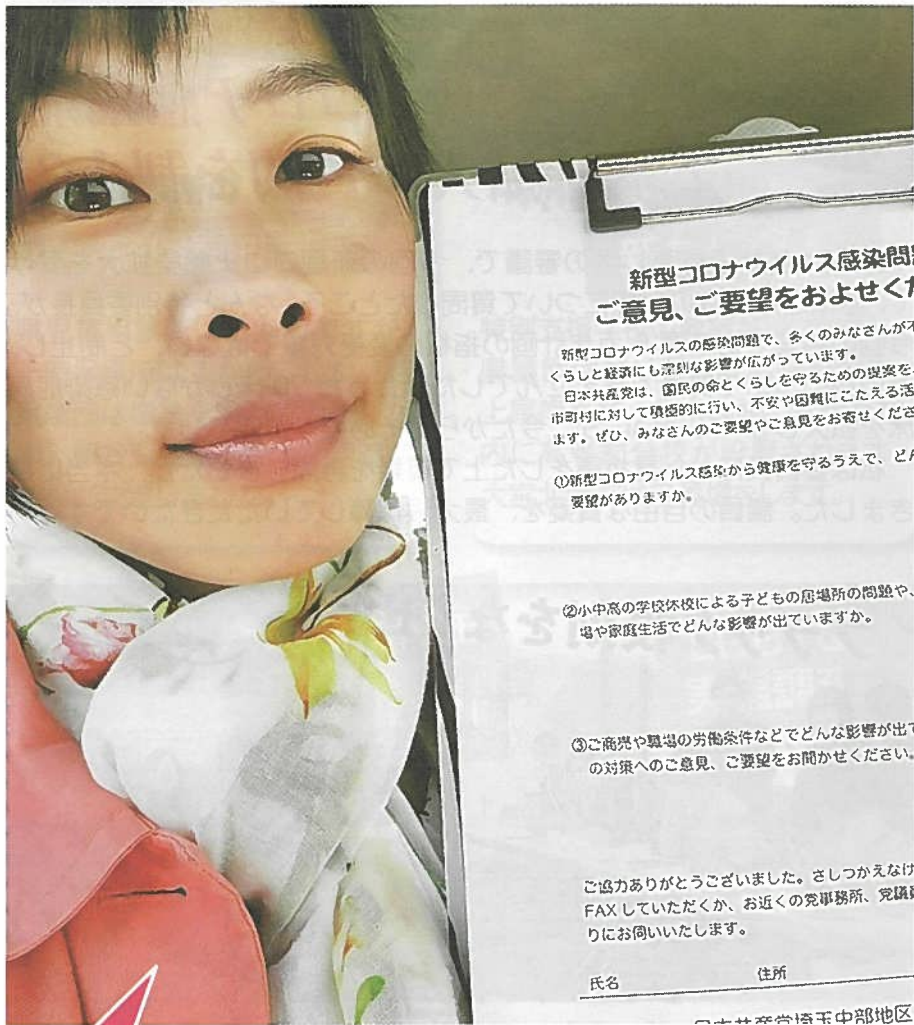 新型コロナウイルス感染問題
ご意見、ご要望をおよせくだ
新型コロナウイルスの感染問題で、多くのみなさんが不
くらしと経済にも深刻な影響が広がっています。
日本共産党は、国民の命とくらしを守るための提案を
市町村に対して積極的に行い、不安や困難にこたえる活
ます。ぜひ、みなさんのご要望やご意見をお寄せくださ
①新型コロナウイルス感染から健康を守るうえで、どん
要望がありますか。
②小中高の学校休校による子どもの居場所の問題や、
場や家庭生活でどんな影響が出ていますか。
③ご商売や職場の労働条件などでどんな影響が出て
の対策へのご意見、ご要望をお聞かせください。
ご協力ありがとうございました。さしつかえなけ
FAXしていただくか、お近くの党事務所、党議員
りにお伺いいたします。
氏名 住所
日本共産党埼玉中部地区